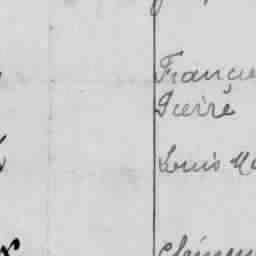 François
Pierre
Louis Ma
Clémen